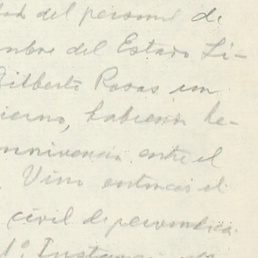 del personal de
nombre del Estado Li-
Gilberto Rosas un
bierno, habiendo he-
nnivencia entre el
Vino entonces el
civil de
1ª Instancia